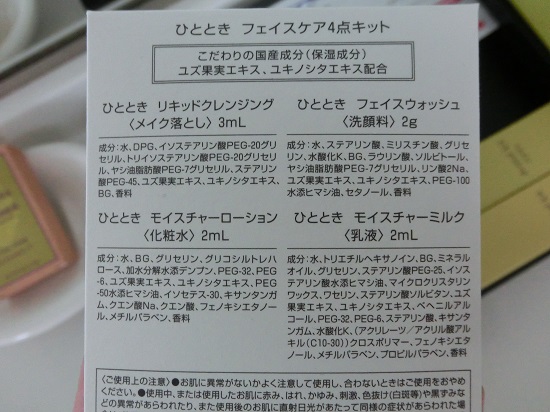 ひととき フェイスケア4点キット
こだわりの国産成分(保湿成分)
ユズ果実エキス、ユキノシタエキス配合
ひととき リキッドクレンジング
〈メイク落とし〉3mL
成分:水、DPG、イソステアリン酸PEG-20グリ
セリル、トリイソステアリン酸PEG-20グリセリ
ル、ヤシ油脂肪酸PEG-7グリセリル、ステアリン
酸PEG-45、ユズ果実エキス、ユキノシタエキス、
BG、香料
ひととき フェイスウォッシュ
〈洗顔料〉2g
成分:水、ステアリン酸、ミリスチン酸、グリセ
リン、水酸化K、BG、ラウリン酸、ソルビトール、
ヤシ油脂肪酸PEG-7グリセリル、リン酸2Na、
ユズ果実エキス、ユキノシタエキス、PEG-100
水添ヒマシ油、セタノール、香料
ひととき モイスチャーローション
〈化粧水〉2mL
成分:水、BG、グリセリン、グリコシルトレハ
ロース、加水分解水添デンプン、PEG-32、PEG
-6、ユズ果実エキス、ユキノシタエキス、PEG
-50水添ヒマシ油、イソセテス-30、キサンタンガ
ム、クエン酸Na、クエン酸、フェノキシエタノー
ル、メチルパラベン、香料
ひととき モイスチャーミルク
〈乳液〉2mL
成分:水、トリエチルヘキサノイン、BG、ミネラル
オイル、グリセリン、ステアリン酸PEG-25、イソス
テアリン酸水添ヒマシ油、マイクロクリスタリン
ワックス、ワセリン、ステアリン酸ソルビタン、ユズ
果実エキス、ユキノシタエキス、ベヘニルアル
コール、PEG-32、PEG-6、ステアリン酸、キサン
タンガム、水酸化K、(アクリレーツ/アクリル酸アル
キル(C10-30))クロスポリマー、フェノキシエタ
ノール、メチルパラベン、プロピルパラベン、香料
〈ご使用上の注意〉●お肌に異常がないかよく注意して使用し、合わないときはご使用をおやめ
ください。●使用中、または使用したお肌に赤み、はれ、かゆみ、刺激、色抜け(白斑等)や黒ずみな
どの異常があらわれたり、また使用後のお肌に直射日光があたって同様の症状があらわれた場合